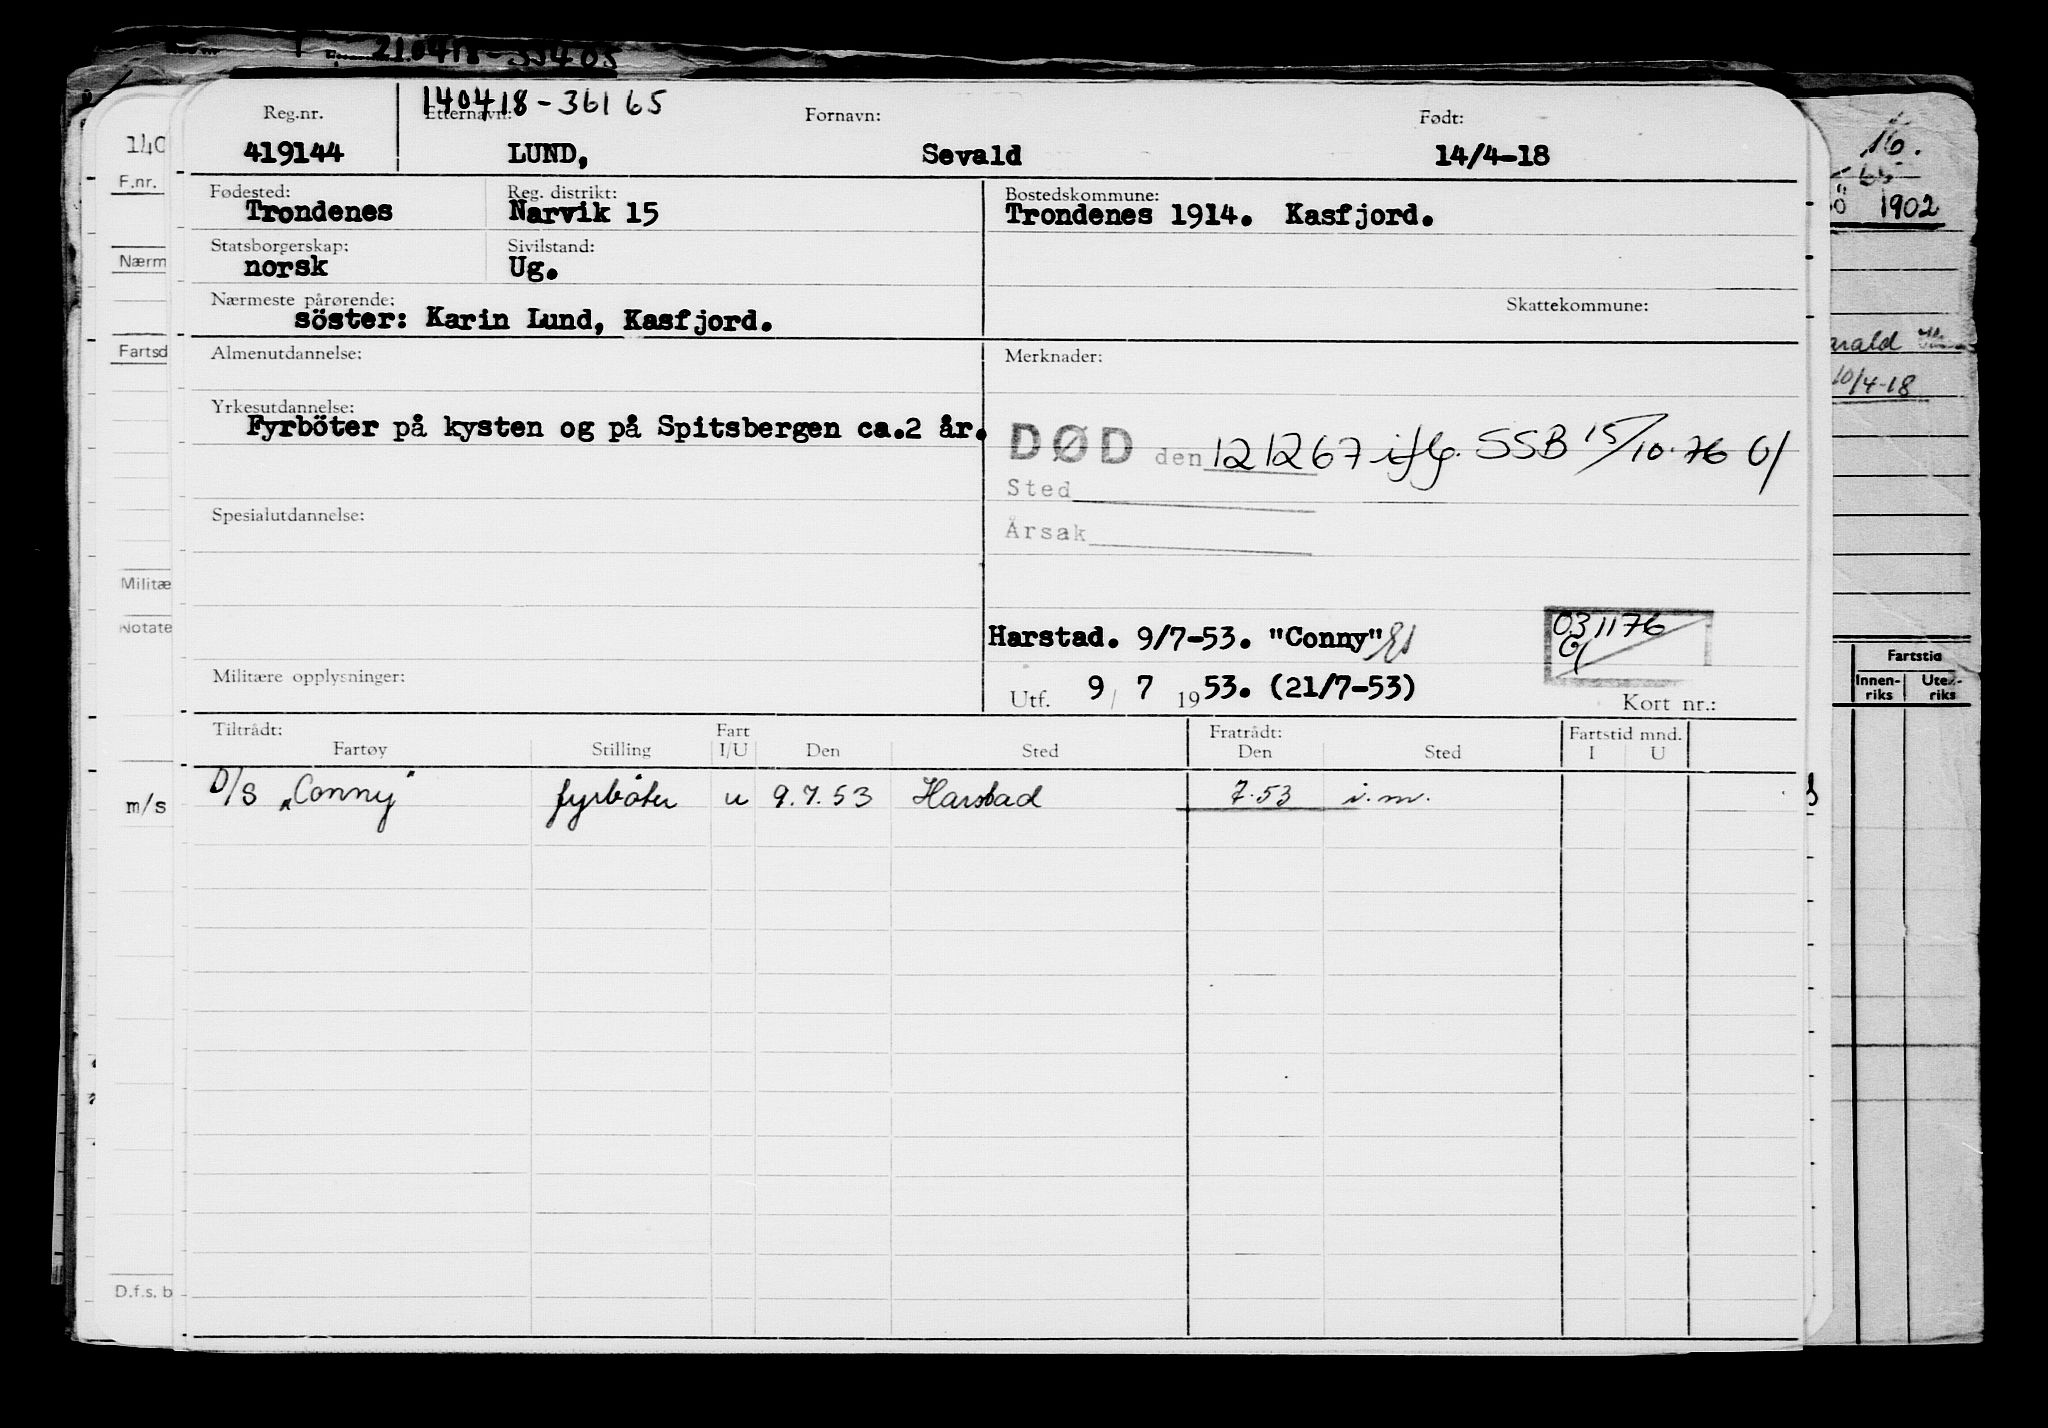 210418-33403
140418-36165
Reg.nr. Etternavn: Fornavn: Født:
419144 LUND, Sevald 14/4-18
Fødested: Reg. distrikt: Bostedskommune:
Trondenes Narvik 15 Trondenes 1914. Kasfjord.
Statsborgerskap: Sivilstand:
norsk Ug.
Nærmeste pårørende: Skattekommune:
söster: Karin Lund, Kasfjord.
Almenutdannelse: Merknader:
Yrkesutdannelse:
Fyrböter på kysten og på Spitsbergen ca.2 år.
DØD den 121267 iflg. SSB 15/10.76
Sted
Spesialutdannelse:
Årsak
Harstad. 9/7-53. "Conny"
031176
Militære opplysninger:
Utf. 9 / 7 1953. (21/7-53)
Kort nr.:
Tiltrådt: Fart Fratrådt: Fartstid mnd.
Fartøy Stilling I/U Den Sted Den Sted I U
D/S "Conny" fyrbøter u 9.7.53 Harstad 7.53 i.m.
140
F.nr.
Nærm
Fartsd
Militæ
Notate
m/s
D.f.s. b
16.
1902
arald
10/4-18
Fartstid
Innen-riks Uten-riks